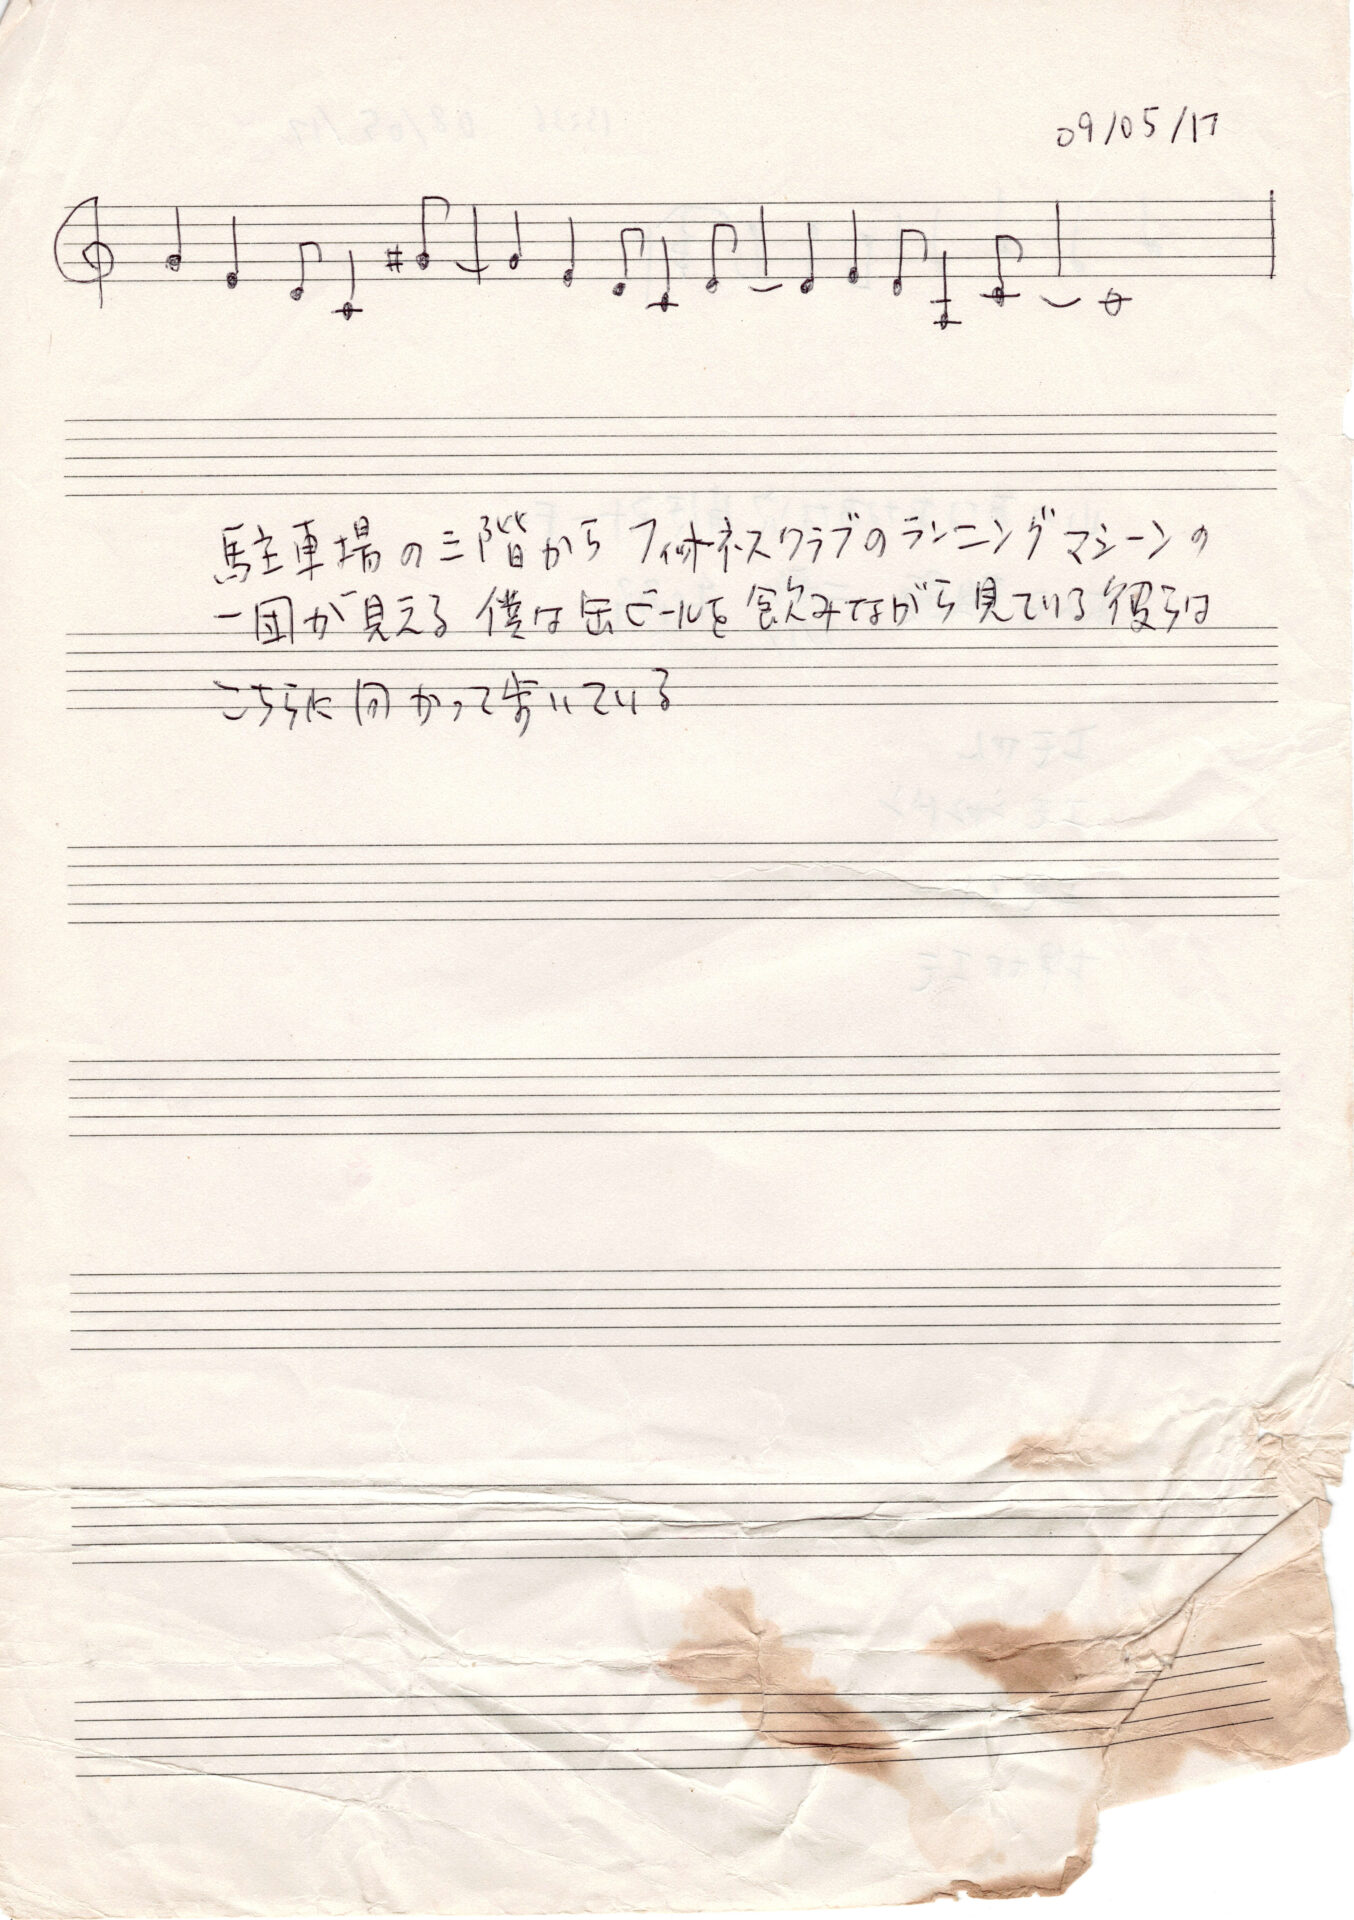 09/05/17
駐車場の三階からフィットネスクラブのランニングマシーンの
一団が見える 僕は缶ビールを飲みながら見ている 彼らは
こちらに向かって歩いている